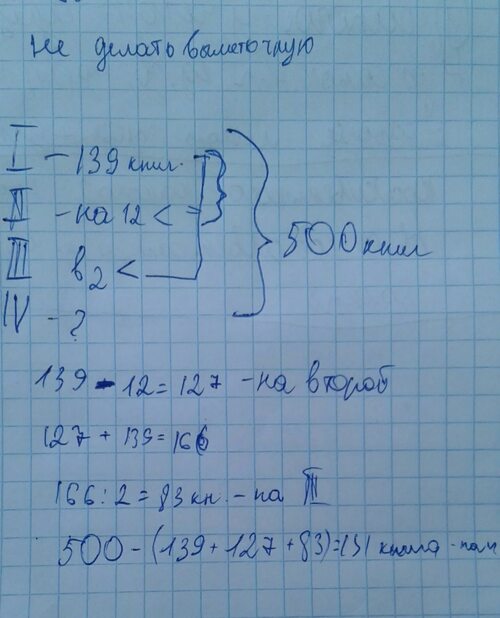 не делать
I - 139 книг.
II - на 12 <
III в 2 <
IV - ?
500 книг
139 - 12 = 127 - на второй
127 + 139 = 166
166 : 2 = 83 кн. - на III
500 - (139 + 127 + 83) = 151 книга